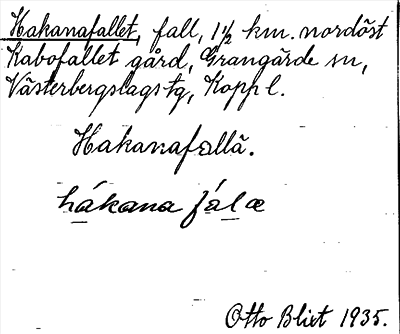 Hakanafallet, fall, 1½ km. nordöst
Kabofallet gård, Grangärde sn,
Västerbergslags tg, Kopp l.
Hakanafallä.
hákana fálæ
Otto Blixt 1935.